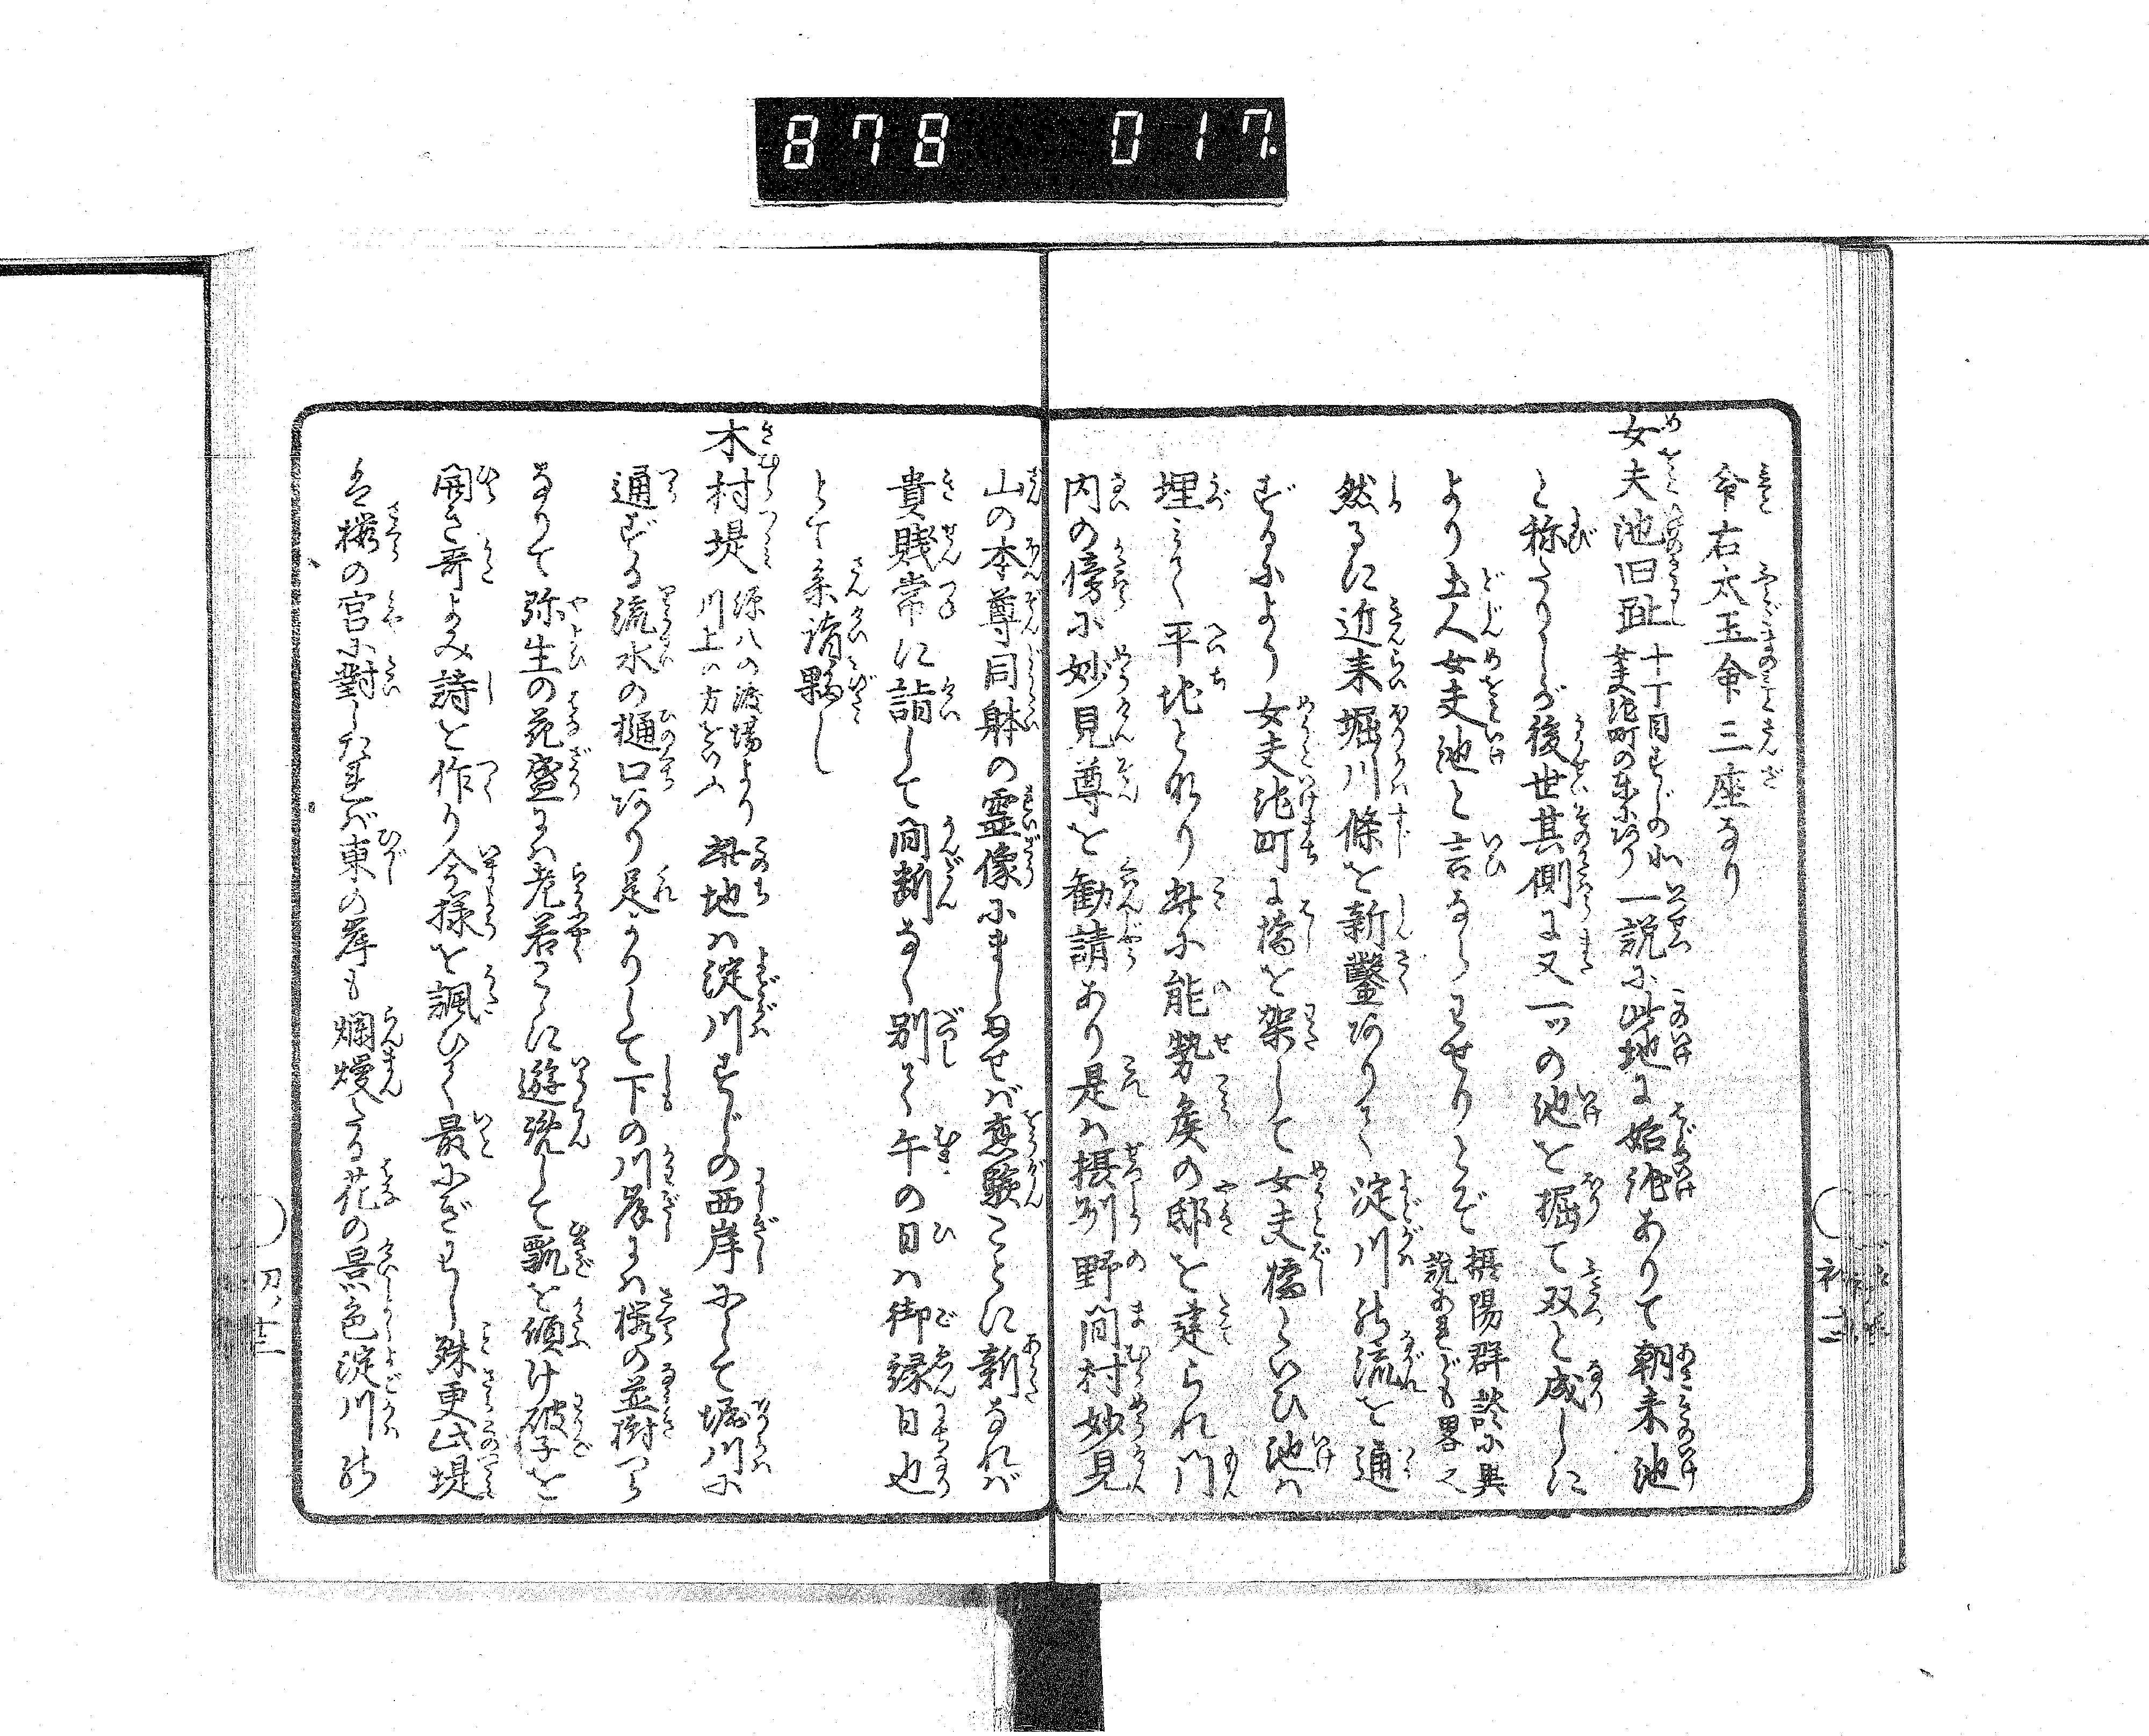 878 017.
命右太玉命三座なり
女夫池旧趾 十丁目すじの北 女夫池町の東にあり 一説に此地に始池ありて朝来池
と称たりしが後世其側に又一ツの池を掘て双と成しに
より土人女夫池と言ならはせりとぞ 摂陽群談に異 説あれども畧之
然るに近来堀川條を新鑿ありて淀川の流を通
ずるにより女夫池町に橋を架して女夫橋といひ池は
埋みて平地と成り此に能勢矦の邸を建られ門
内の傍に妙見尊を勧請あり是は摂州野間村妙見
山の本尊同躰の霊像にましませば應驗ことに新なれば
貴賎常に詣して間断なく別て午の日は御縁日也
とて参詣夥し
木村堤 源八の渡場より 川上の方をいふ 此地は淀川すじの西岸にして堀川に
通ずる流水の樋口あり是よりして下の川岸には櫻の並樹つら
なりて弥生の花盛には老若こゝに遊覧して瓢を傾け破子を
開き哥よみ詩を作り今様を諷ひて最にぎはし殊更此堤
は櫻の宮に對したれば東の岸も爛熳たる花の景色淀川の